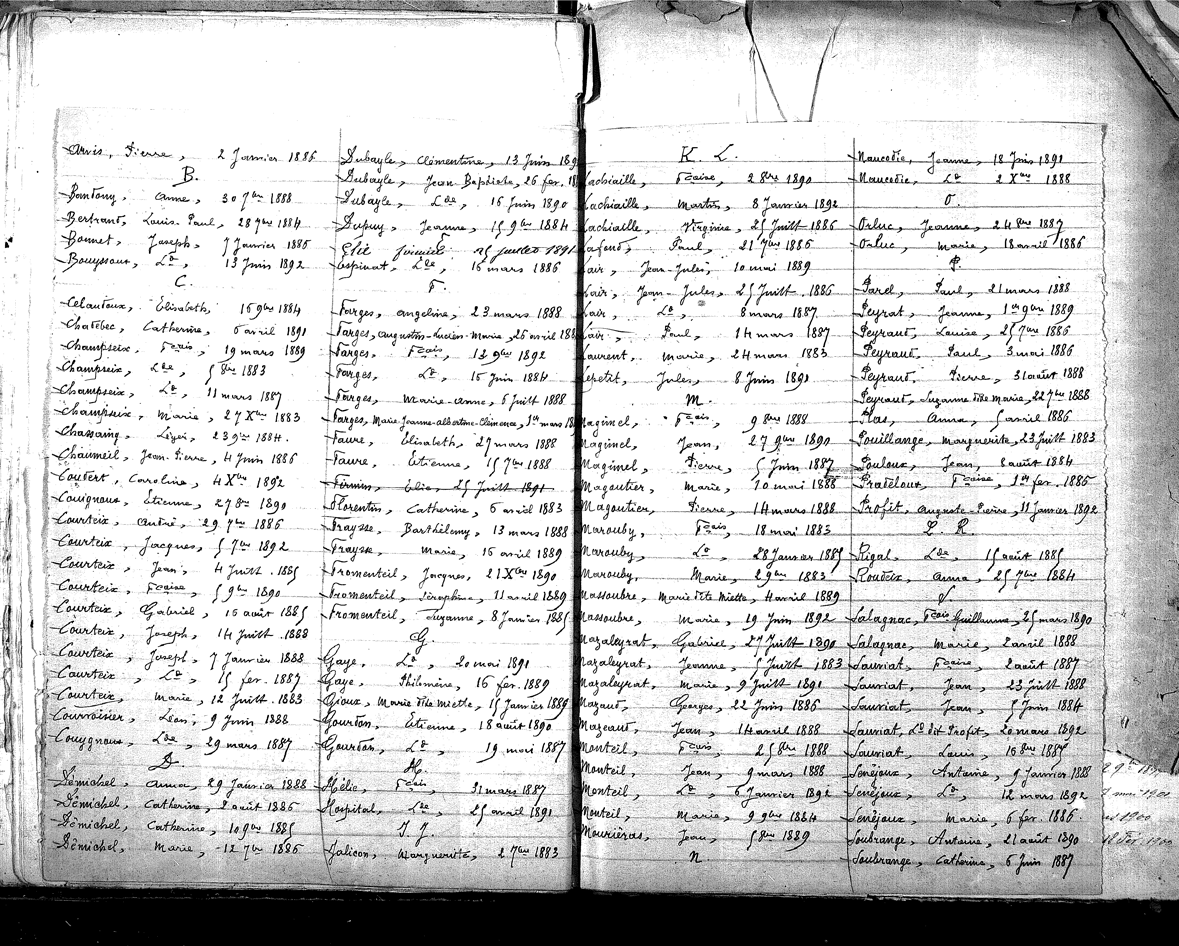 Arvis, Pierre, 2 Janvier 1886
B.
Bontony, Anna, 30 7bre 1888
Bertrand, Louis-Paul, 28 7bre 1884
Bonnet, Joseph, 7 Janvier 1886
Bouyssout, Ld, 13 Juin 1892
C.
Celautoux, Elisabeth, 16 9bre 1884
Chatébec, Catherine, 6 avril 1891
Champseix, Fcois, 19 mars 1889
Champseix, Lde, 5 8bre 1883
Champseix, Ld, 11 mars 1887
Champseix, Marie, 27 Xbre 1883
Chassaing, Léger, 23 9bre 1884.
Chaumeil, Jean-Pierre, 4 Juin 1886
Coubert, Caroline, 4 Xbre 1892
Couignoux, Etienne, 27 8bre 1890
Courteix, André, 29 7bre 1886
Courteix, Jacques, 5 7bre 1892
Courteix, Jean, 4 Juillt. 1885
Courteix, Fcoise, 5 9bre 1890
Courteix, Gabriel, 16 août 1885
Courteix, Joseph, 14 Juillt. 1888
Courteix, Joseph, 7 Janvier 1888
Courteix, Ld, 15 fer. 1887
Courteix, Marie, 12 Juillt. 1883
Courvoisier, Léon, 9 Juin 1888
Couygnoux, Lde, 29 mars 1887
D.
Démichel, Anna, 29 Janvier 1888
Démichel, Catherine, 2 août 1886
Démichel, Catherine, 10 9bre 1885
Démichel, Marie, 12 7bre 1886
Dubayle, Clémentine, 13 Juin
Dubayle, Jean-Baptiste, 26 fer.
Dubayle, Lde, 16 Juin 1890
Dupuy, Jeanne, 15 9bre 1884
Elie Firmin 25 juillet 1891
Espinat, Lde, 16 mars 1886
F.
Farges, Angeline, 23 mars 1888
Farges, Augustin-Lucien-Marie, 26 avril
Farges, Fcois, 13 9bre 1892
Farges, Ld, 15 Juin 1884
Farges, Marie-Anne, 6 Juillt 1888
Farges, Marie Jeanne-Albertine-Clémence, 1er mars
Faure, Elisabeth, 27 mars 1888
Faure, Etienne, 15 7bre 1888
Firmin, Elie, 25 Juillt 1891
Florentin, Catherine, 6 avril 1883
Fraysse, Barthélemy, 13 mars 1888
Fraysse, Marie, 15 avril 1889
Fromenteil, Jacques, 21 Xbre 1890
Fromenteil, Séraphine, 11 avril 1889
Fromenteil, Suzanne, 8 Janvier 1885
G.
Gaye, Ld, 20 mai 1891
Gaye, Philomène, 16 fer. 1889
Gioux, Marie dite Miette, 15 Janvier 1889
Gourdon, Etienne, 18 août 1890
Gourdon, Ld, 19 mai 1887
H.
Hélie, Fcois, 31 mars 1887
Hospital, Lde, 25 avril 1891
I. J.
Jalicon, Marguerite, 2 7bre 1883
K. L.
Lachiaille, Fcoise, 2 8bre 1890
Lachiaille, Martin, 8 Janvier 1892
Lachiaille, Virginie, 25 Juillt 1886
Lafond, Paul, 21 7bre 1886
Lair, Jean-Jules, 10 mai 1889
Lair, Jean-Jules, 25 Juillt. 1886
Lair, Ld, 8 mars 1887
Lair, Paul, 14 mars 1887
Laurent, Marie, 24 mars 1883
Lepetit, Jules, 8 Juin 1891
M.
Maginel, Fcois, 9 8bre 1888
Maginel, Jean, 27 9bre 1890
Maginel, Pierre, 5 Juin 1887
Magoutier, Marie, 10 mai 1888
Magoutier, Pierre, 14 mars 1888
Marouby, Fcois, 18 mai 1883
Marouby, Ld, 28 Janvier 1885
Marouby, Marie, 29 9bre 1883
Massoubre, Marie dite Miette, 4 avril 1889
Massoubre, Marie, 19 Juin 1892
Mazaleyrat, Gabriel, 27 Juillt 1890
Mazaleyrat, Jeanne, 5 Juillt 1883
Mazaleyrat, Marie, 9 Juillt 1891
Mazaud, Georges, 22 Juin 1886
Mazeaud, Jean, 14 avril 1888
Monteil, Fcois, 25 8bre 1888
Monteil, Jean, 9 mars 1888
Monteil, Ld, 6 Janvier 1892
Monteil, Marie, 9 9bre 1884
Mouriéras, Jean, 5 8bre 1889
N
Naucodie, Jeanne, 18 Juin 1891
Naucodie, Ld 2 Xbre 1888
O.
Orluc, Jeanne, 24 8bre 1887
Orluc, Marie, 18 avril 1886
P.
Parel, Paul, 21 mars 1888
Peyrat, Jeanne, 1er 9bre 1889
Peyraud, Louise, 25 7bre 1886
Peyraud, Paul, 3 mai 1886
Peyraud, Pierre, 31 août 1888
Peyraud, Suzanne dite Marie, 22 7bre 1888
Plas, Anna, 5 avril 1886
Pouillange, Marguerite, 23 Juillt 1883
Pouloux, Jean, 8 août 1884
Pradeloux, Fcoise, 1er fer. 1885
Profit, Auguste-Pierre, 11 Janvier 1892
Q. R.
Rigal, Lde, 15 août 1885
Roudeix, Anna, 25 7bre 1884
S
Salagnac, Fcois Guillaume, 25 mars 1890
Salagnac, Marie, 2 avril 1888
Sauviat, Fcoise, 2 août 1887
Sauviat, Jean, 23 Juillt 1888
Sauviat, Jean, 5 Juin 1884
Sauviat, Ld dit Profit, 20 mars 1892
Sauviat, Louis, 16 8bre 1885
Senéjoux, Antoine, 9 Janvier 1888
Senéjoux, Ld, 12 mars 1892
Senéjoux, Marie, 6 fer. 1886
Soubrange, Antoine, 21 août 1890
Soubrange, Catherine, 6 Juin 1887